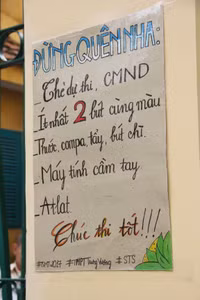 ĐỪNG QUÊN NHA:
_Thẻ dự thi, CMND
_Ít nhất 2 bút cùng màu
_Thước, compa, tẩy, bút chì.
_Máy tính cầm tay
_Atlat
Chúc thi tốt!!!
#THPT Hùng Vương #STS